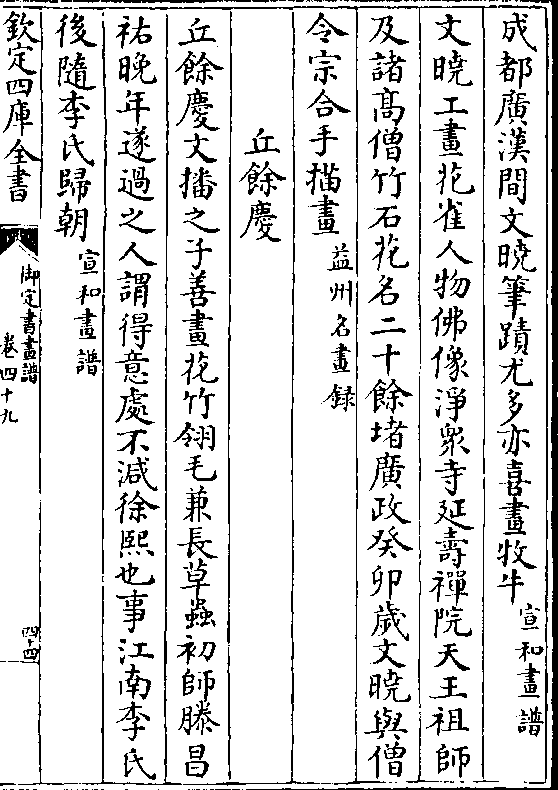 成都廣漢間文曉筆蹟尤多亦喜畫牧牛宣和畫譜
文曉工畫花雀人物佛像淨衆寺延壽禪院天王祖師
及諸髙僧竹石花名二十餘堵廣政癸卯歳文曉與僧
令宗合手描畫益州名畫録
丘餘慶
丘餘慶文播之子善畫花竹翎毛兼長草蟲初師滕昌
祐晚年遂過之人謂得意處不減徐熙也事江南李氏
後隨李氏歸朝宣和畫譜
欽定四庫全書
御定書畫譜
卷四十九
四四